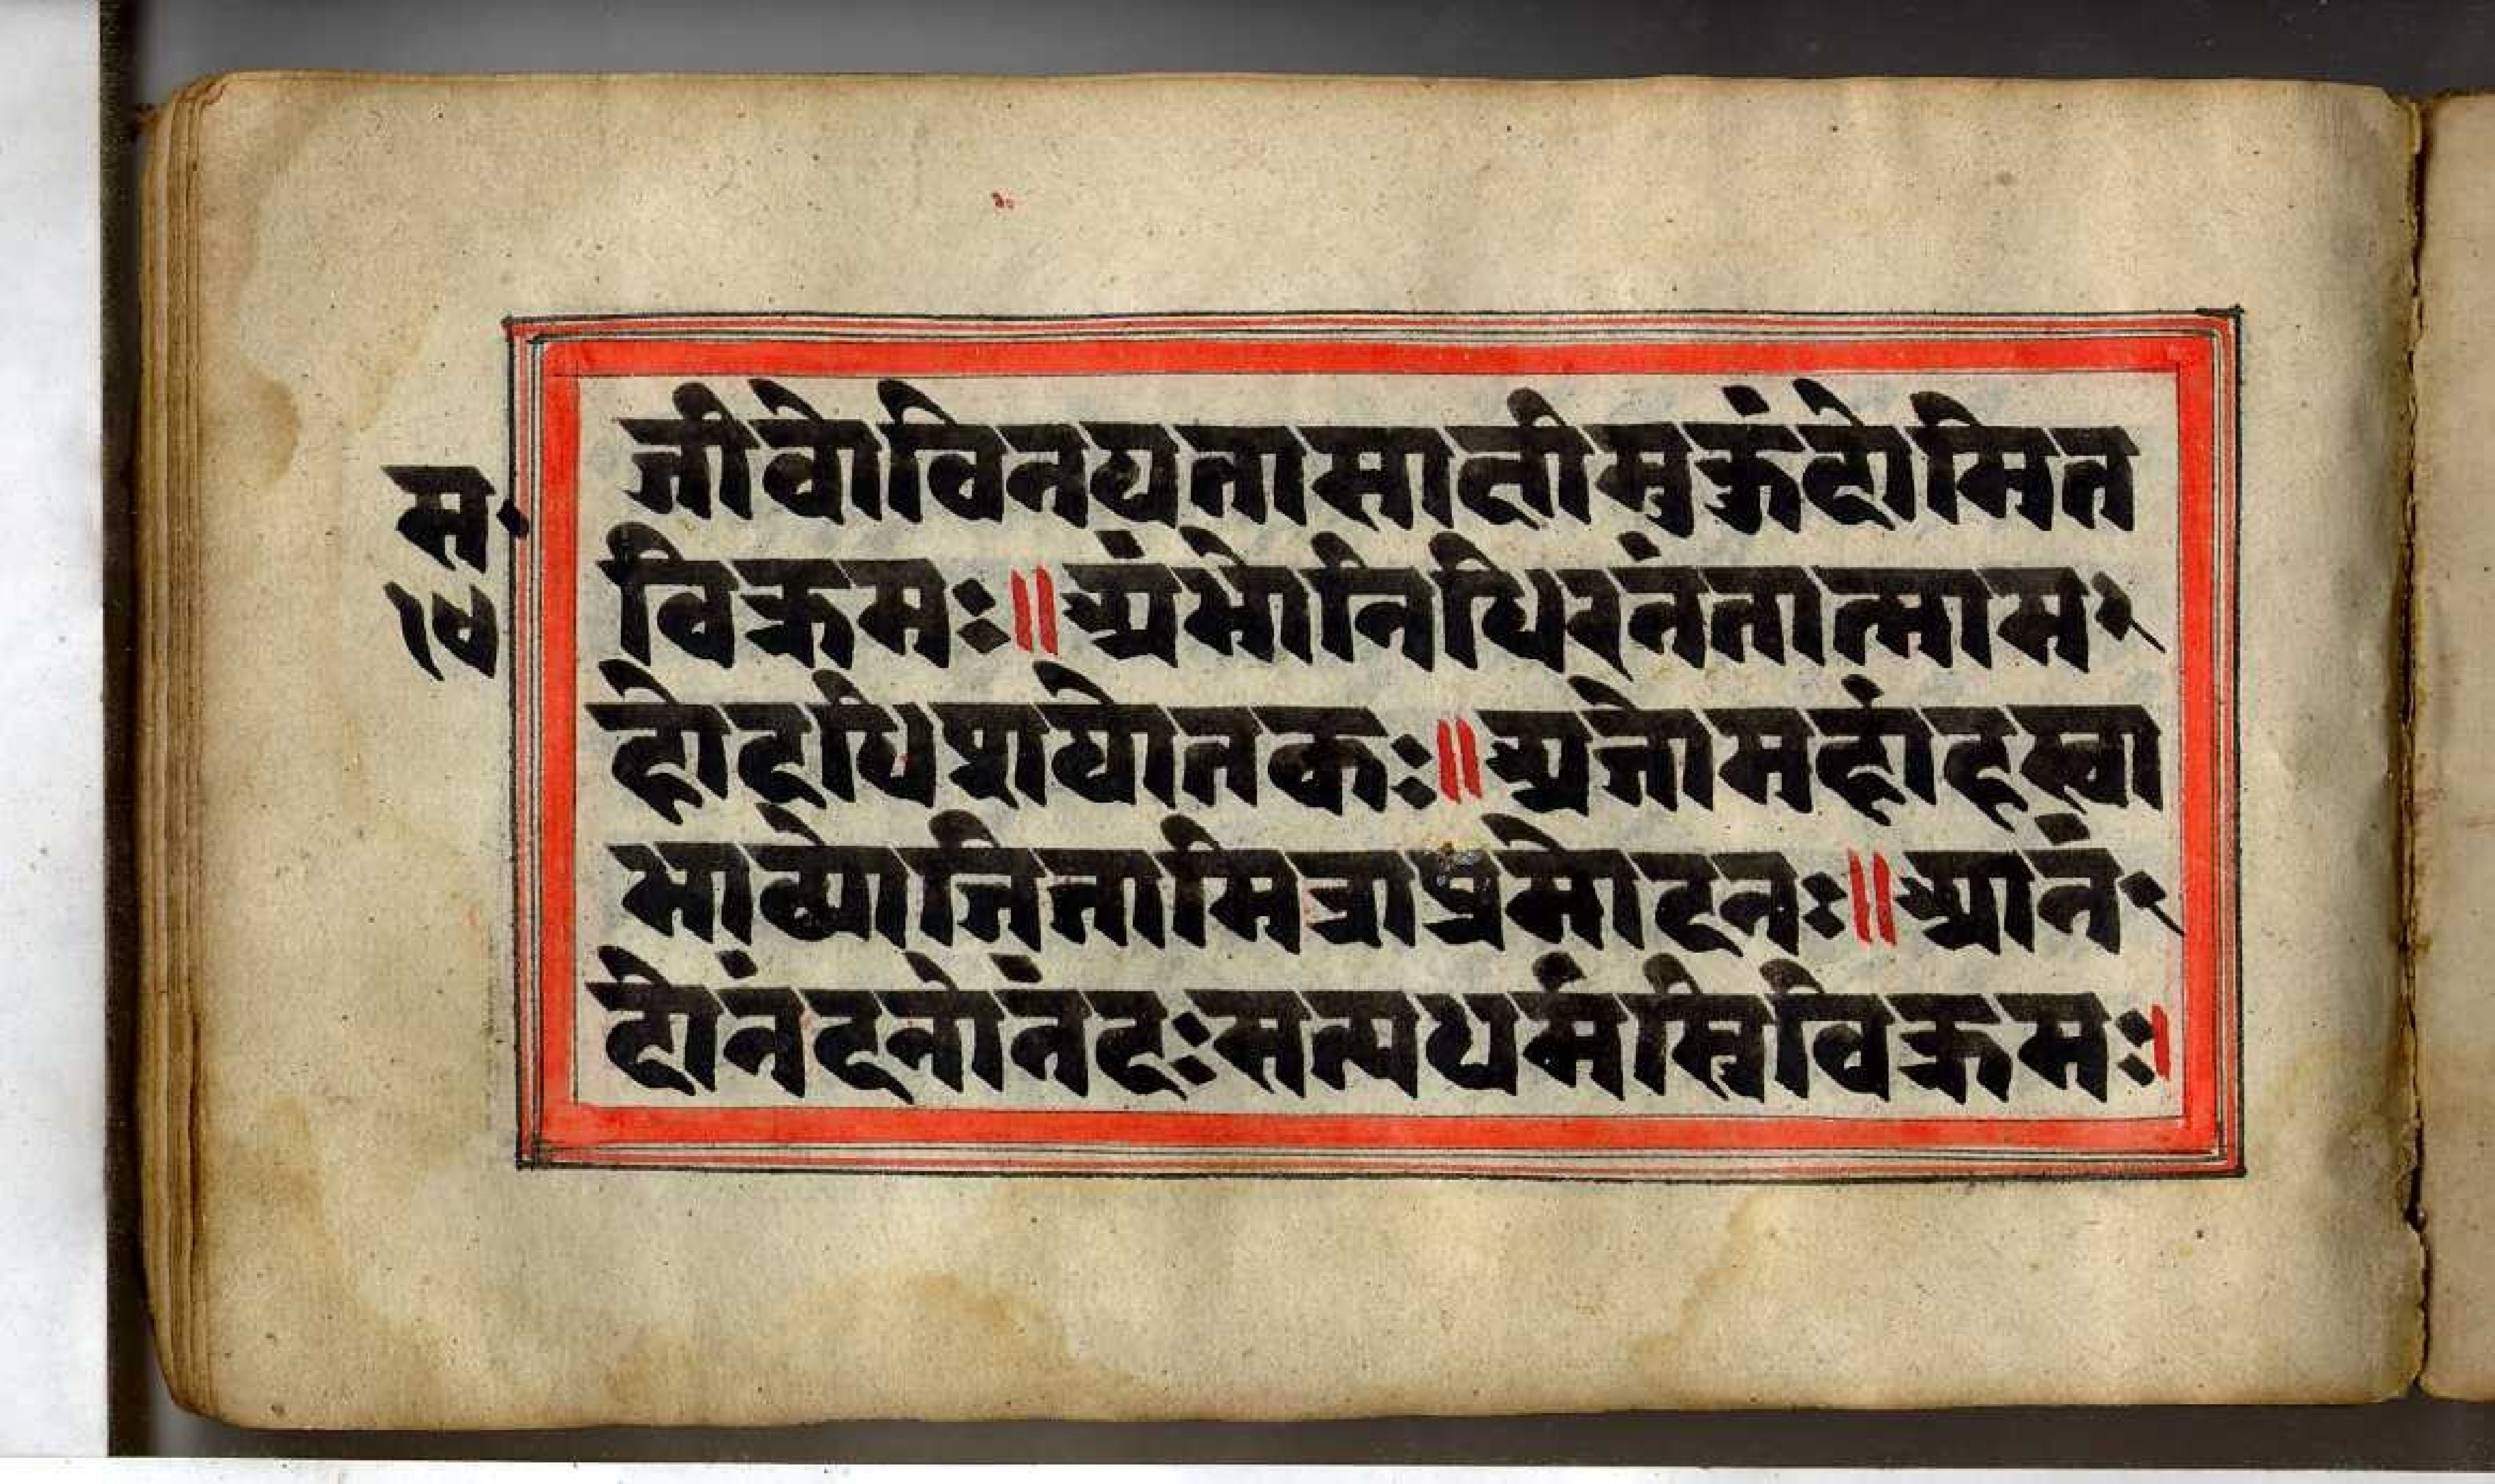 स॰
१७
जीवोविनयतासाक्षीमुकुंदोमित
विक्रमः॥अंभोनिधिरनंतात्माम
होदधिशयोतकः॥अजोमहार्हस्वा
भाव्योजितामित्राप्रमोदनः॥आनं
दोनंदनोनंदःसत्यधर्मस्त्रिविक्रमः।